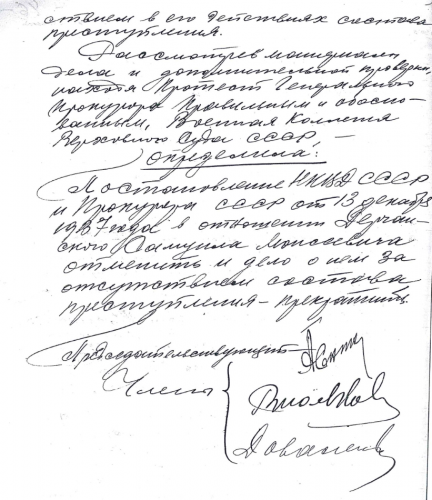 ствием в его действиях состава
преступления.
Рассмотрев материалы
дела и дополнительной проверки,
находя Протест Генерального
Прокурора правильным и обосно-
ванным, Военная Коллегия
Верховного Суда СССР, —
определила:
Постановление НКВД СССР
и Прокурора СССР от 13 декабря
1937 года в отношении
Самуила Моисеевича
отменить и дело о нем за
отсутствием состава
преступления - прекратить.
Председательствующий
Члены